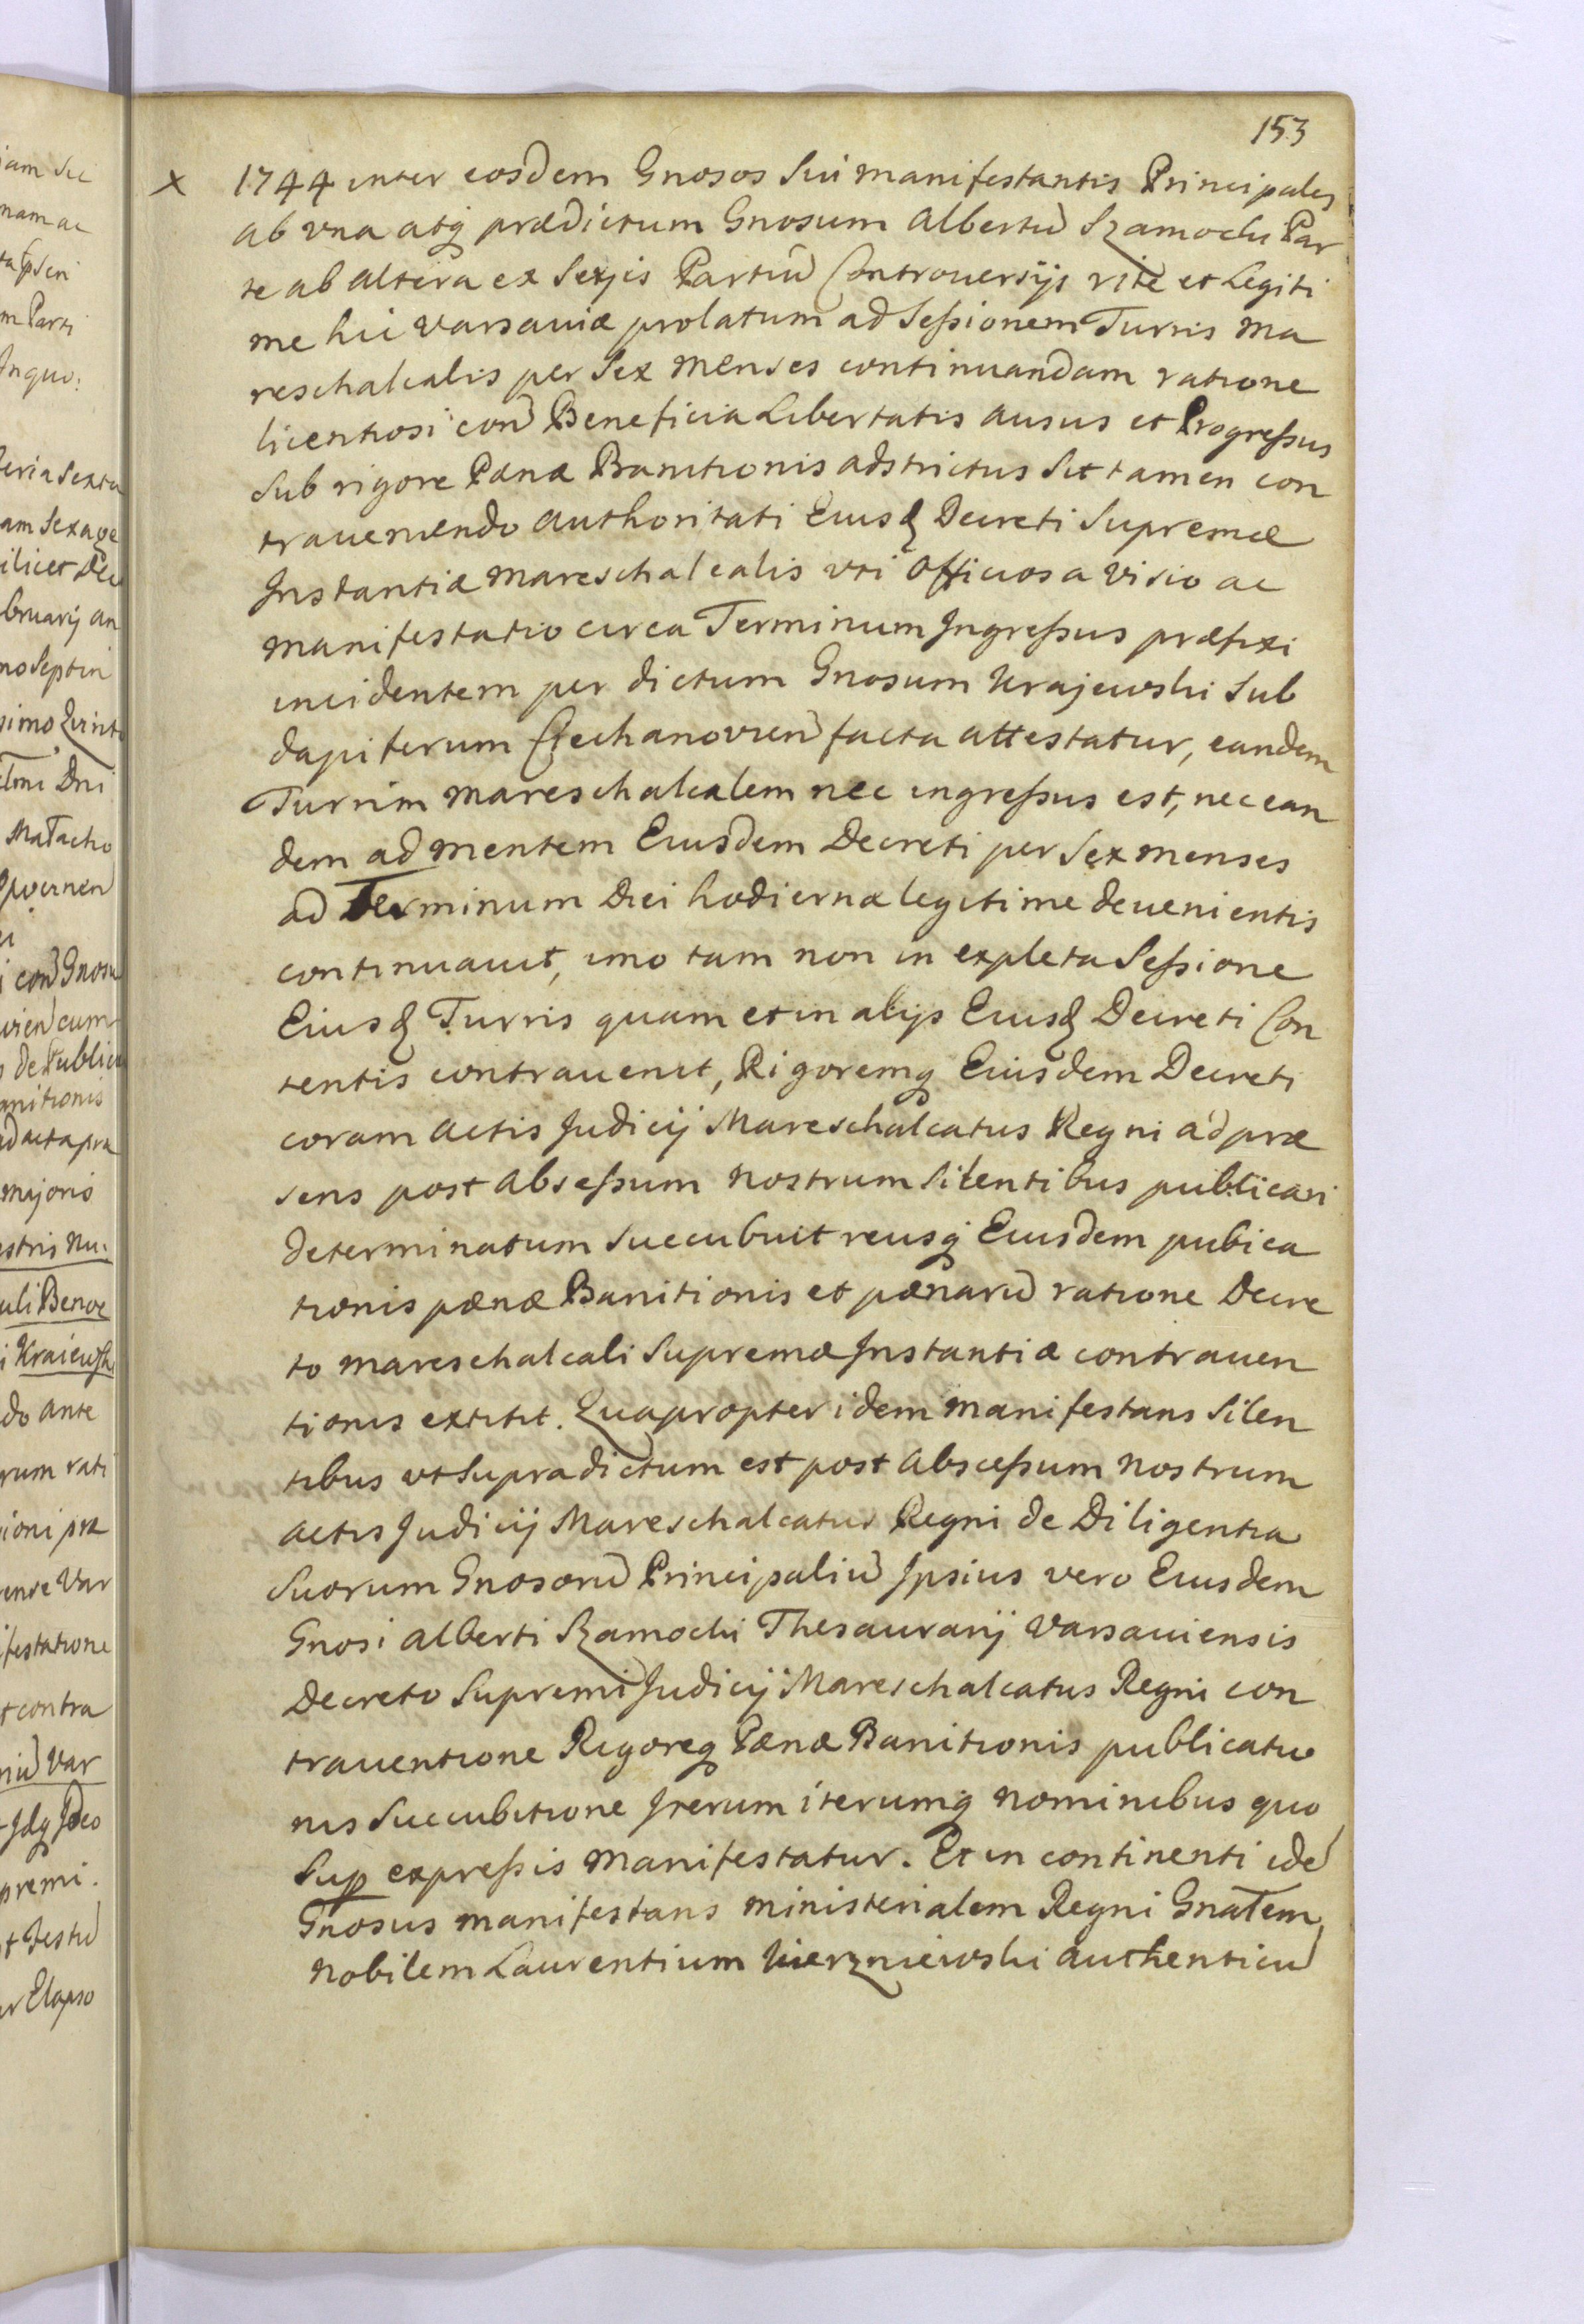 153
x 1744 inter eosdem Gnosos Sui manifestantis Principales
ab vna atq prædictum Gnosum Albertũ Szamocki Par
te ab altera ex Sexjis Partiũ Controversijs rite et Legiti
me hic Varsaviæ prolatum ad Seſsionem Turris Ma
reschalcalis per Sex Menses continuandam ratione
licentiosi con Beneficia Libertatis ausus et Progreſsus
Sub rigore Pænæ Banitionis adstrictus Sit tamen con
traueniendo authoritati Eiusd Decreti Supremæ
Instantiæ Mareschalcalis vti Officiosa Visio ac
Manifestatio circa Terminum Ingreſsus præfixi
incidentem per dictum Gnosum Krajewski Sub
dapiferum Ciechanovien facta attestatur, eandem
Turrim Mareschalcalem nec ingreſsus est, nec ean
dem ad mentem Eiusdem Decreti per Sex menses
ad Terminum Diei hodiernæ legitime devenientis
continuauit, imo tam non in expleta Seſsione
Eiusd Turris quam et in alijs Eiusd Decreti Con
tentis contrauenit, Rigoremq Eiusdem Decreti
coram Actis Judicij Mareschalcatus Regni ad præ
sens post Absceſsum nostrum Silentibus publicari
determinatum Succubuit reusq Eiusdem pubica
tionis pænæ Banitionis et pænarũ ratione Decre
to Mareschalcali Supremæ Instantiæ contrauen
tionis extitit. Quapropter idem Manifestans Silen
tibus vt Supradictum est post Absceſsum nostrum
Actis Judicij Mareschalcatus Regni de Diligentia
Suorum Gnosorũ Principaliũ Ipsius vero Eiusdem
Gnosi Alberti Szamocki Thesaurarij Varsauiensis
Decreto Supremi Judicij Mareschalcatus Regni con
trauentione Rigoreq Pænæ Banitionis publicatio
nis Succubitione Iterum iterumq nominibus quo
Sup expreſsis Manifestatur. Et in continenti idẽ
Gnosus manifestans Ministerialem Regni Gnalem
Nobilem Laurentium Wierzniewski authenticũ